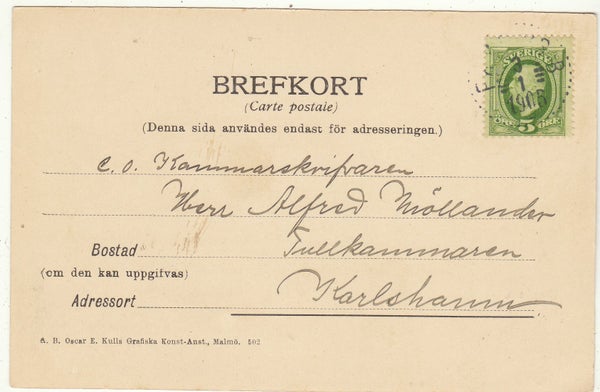 SVERIGE
1
1905
5
ÖRE
ÖRE
BREFKORT
(Carte postale)
(Denna sida användes endast för adresseringen.)
c. o. Kammarskrifvaren
Herr Alfred Möllander
Bostad Tullkammaren
(om den kan uppgifvas)
Adressort Karlshamn
A. B. Oscar E. Kulls Grafiska Konst-Anst., Malmö. 502